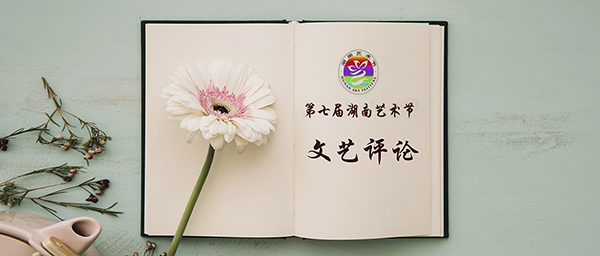 第七届湖南艺术节
文艺评论